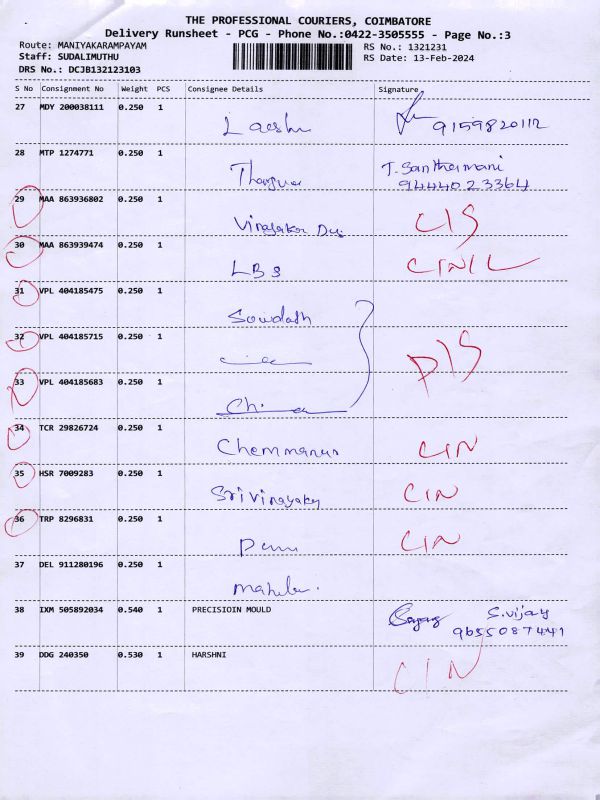 THE PROFESSIONAL COURIERS, COIMBATORE
Delivery Runsheet - PCG - Phone No.:0422-3505555 - Page No.:3
Route: MANIYAKARAMPAYAM RS No.: 1321231
Staff: SUDALIMUTHU RS Date: 13-Feb-2024
DRS No.: DCJB132123103
S No Consignment No Weight PCS Consignee Details Signature
27 MDY 200038111 0.250 1 9159820112
28 MTP 1274771 0.250 1 T. Santhamani
9444023364
29 MAA 863936802 0.250 1 Vinayaka CIS
30 MAA 863939474 0.250 1 LBS CIN/L
31 VPL 404185475 0.250 1 Sowdath
32 VPL 404185715 0.250 1 DIS
33 VPL 404185683 0.250 1
34 TCR 29826724 0.250 1 Chemmanur CIN
35 HSR 7009283 0.250 1 Srivinayaky CIN
36 TRP 8296831 0.250 1 CIN
37 DEL 911280196 0.250 1
38 IXM 505892034 0.540 1 PRECISIOIN MOULD S.vijay
9655087441
39 DDG 240350 0.530 1 HARSHNI CIN